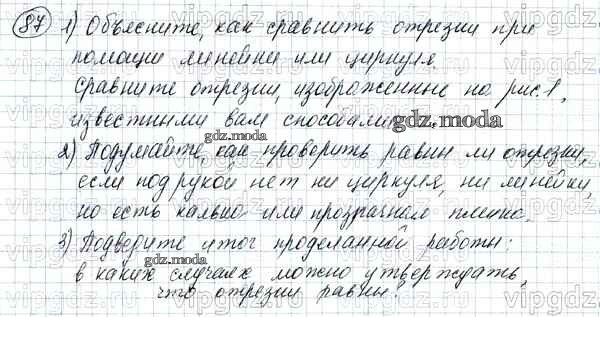 87 1) Объясните, как сравнить отрезки при
помощи линейки или циркуля.
Сравните отрезки, изображенные на рис. 1,
известными вам способами.
gdz.moda
gdz.moda
2) Подумайте, как проверить равны ли отрезки,
если под рукой нет ни циркуля, ни линейки,
но есть калька или прозрачная пленка.
3) Подведите итог проделанной работы:
gdz.moda
в каких случаях можно утверждать,
что отрезки равны?
vipgdz.ru